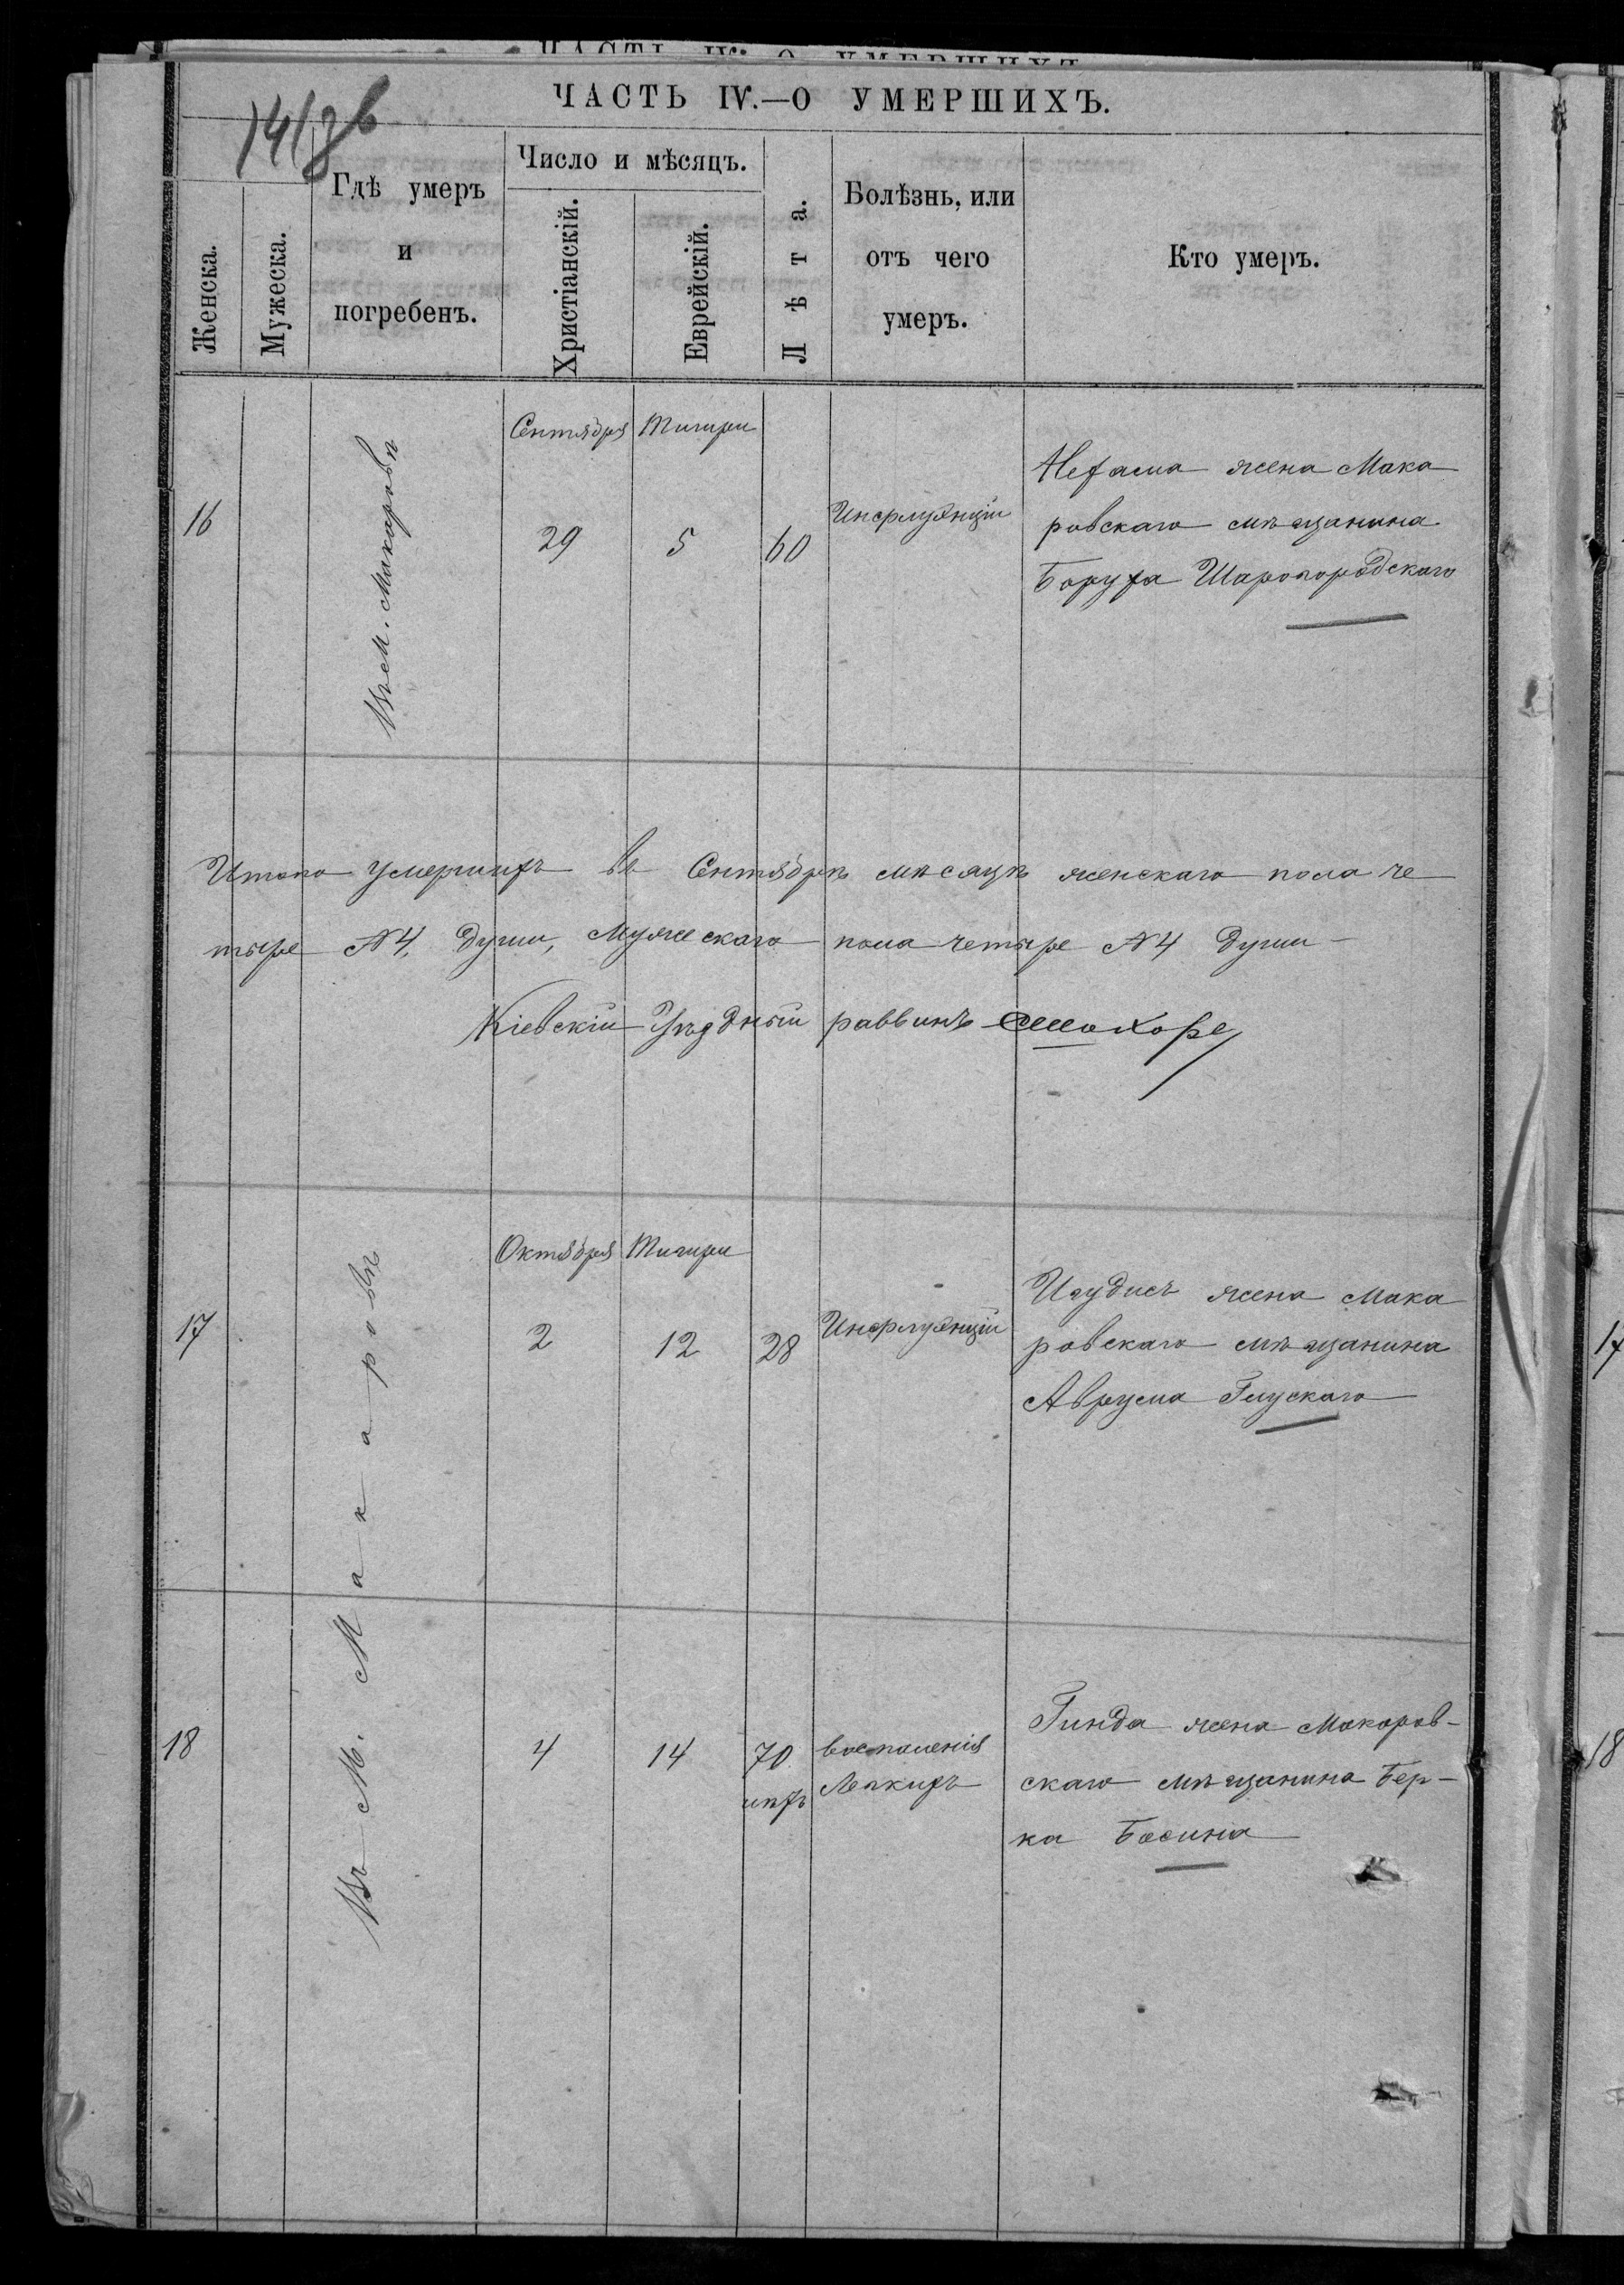 ЧАСТЬ IV.—О УМЕРШИХЪ.
Женска.
Мужеска.
Гдѣ умеръ
и
погребенъ.
Число и мѣсяцъ.
Христіанскій.
Еврейскій.
Лѣта.
Болѣзнь, или
отъ чего
умеръ.
Кто умеръ.
16
Въ м. Макаровѣ
Сентября
29
Тишри
5
60
Инфлуэнціи
Нехама жена Мака
ровскаго мѣщанина
Боруха Шарогородскаго
Итого умершихъ въ Сентябрѣ мѣсяцѣ женскаго пола че
тыре №4, души, Мужескаго пола четыре №4 души
Кіевскій Уѣздный раввинъ
17
Въ М. Макаровѣ
Октября
2
Тишри
12
28
Инфлуэнціи
жена Мака
ровскаго мѣщанина
Аврума Глускаго
18
4
14
70
воспаленія
Легкихъ
Гинда жена Макаров-
скаго мѣщанина Бер-
ка Басина
17
18